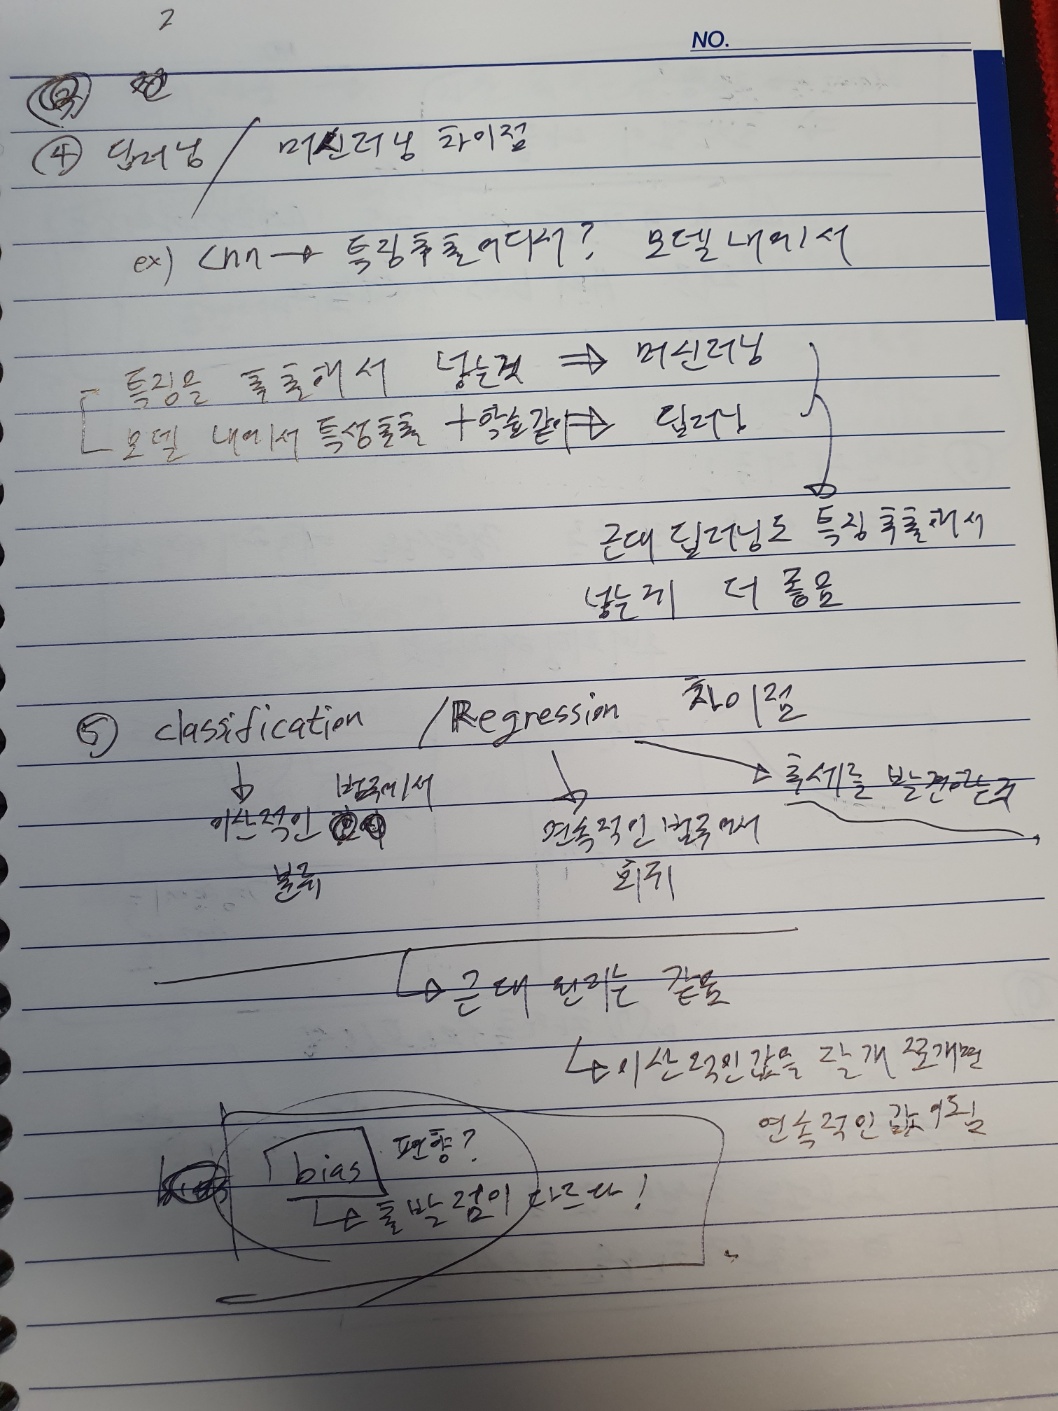 2
NO.
④ 딥러닝 / 머신러닝 차이점
ex) cnn → 특징추출어디서? 모델 내에서
특징을 추출해서 넣는것 ⇒ 머신러닝
모델 내에서 특성추출 + 학습같이 ⇒ 딥러닝
근데 딥러닝도 특징추출해서
넣는게 더 좋음
⑤ classification / Regression 차이점
추세를 발견하는것
범주에서
이산적인
연속적인 범주에서
분류
회귀
근데 원리는 같음
이산적인값을 잘게 쪼개면
연속적인 값이됨
bias 편향?
출발점이 다르다!